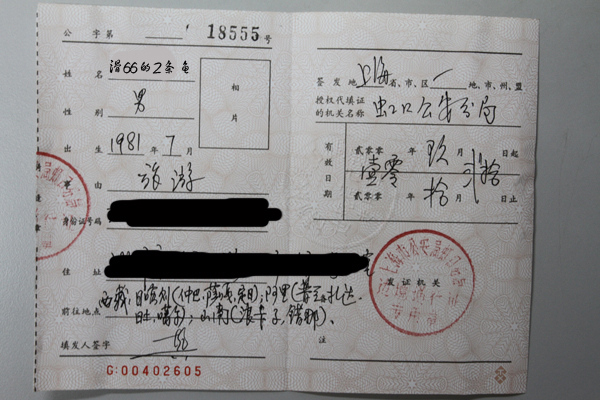 公 字第 18555号
姓 名 潜66的2条鱼
性 别 男
相
片
出 生 1981 年 7 月
事 由 旅游
身份证号码
住 址
西藏:日喀则(仲巴、萨嘎、定日);阿里(普兰、札达
前往地点 日土、噶尔);山南(浪卡子、错那)、
填发人签字
G:00402605
签 发 地 上海 省、市、区 一 地、市、州、盟
授权代填证
的机关名称 虹口公安分局
有效日期
贰零零 年 玖 月 日起
壹零 贰拾
贰零零 年 拾 月 日止
发证机关
注